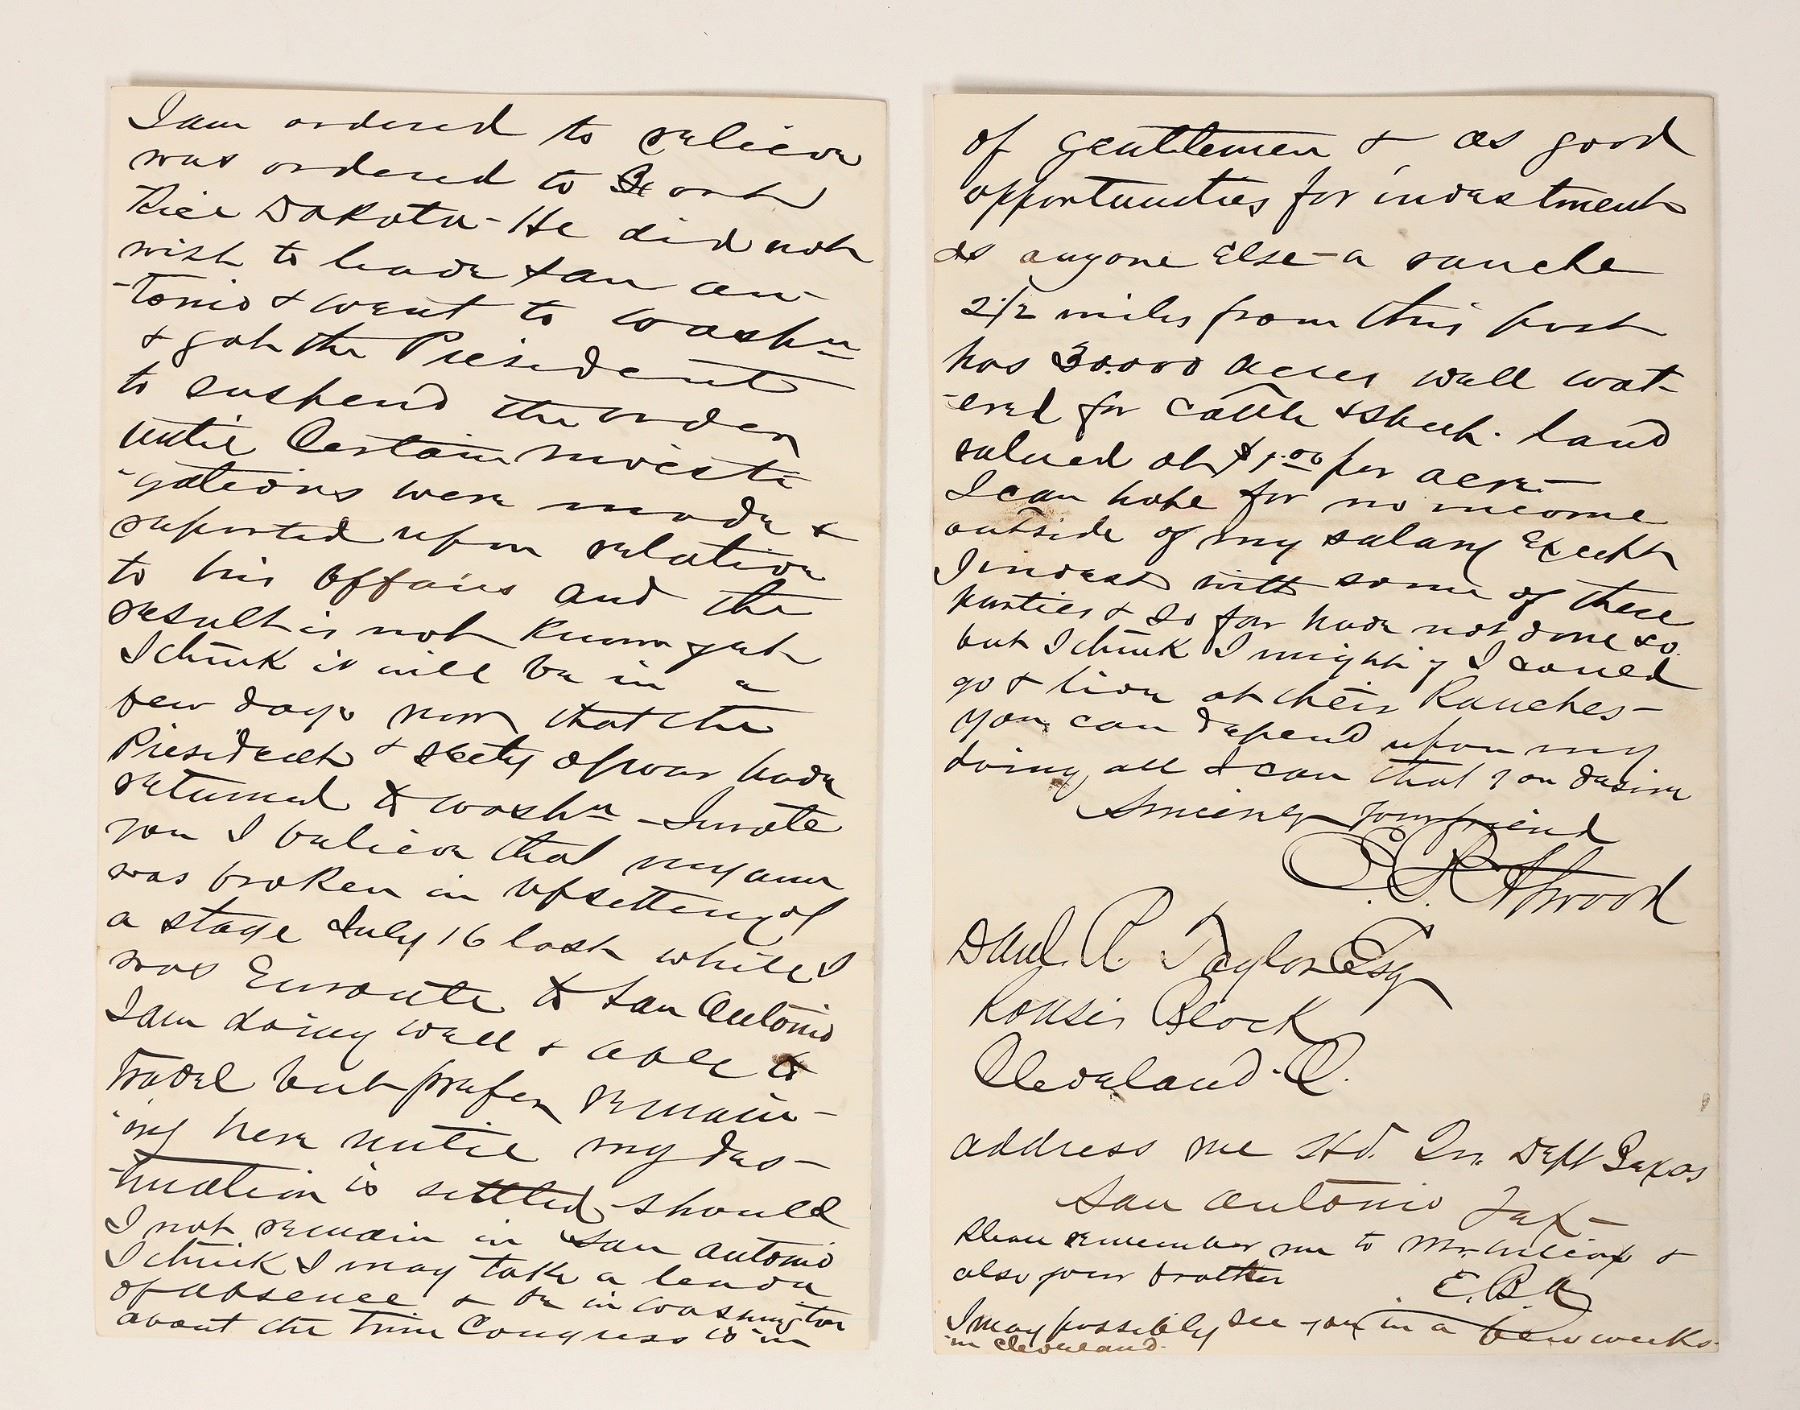 I am ordered to relieve
was ordered to Fort
Rice Dakota - He did not
wish to leave San An-
-tonio & went to Washn
& got the President
to suspend the order
until Certain investi
-gations were made &
reported upon relative
to his affairs and the
result is not known yet
I think it will be in a
few days now that the
President & Secty of War have
returned to Washn - I wrote
you I believe that my arm
was broken in upsetting of
a stage July 16 last while I
was Enroute to San Antonio
I am doing well & able to
travel but prefer remain-
-ing here until my des-
-tination is settled, should
I not remain in San Antonio
I think I may take a leave
of absence & be in Washington
about the time Congress is in
of gentlemen & as good
opportunities for investment
as anyone Else - a ranche
2 1/2 miles from this post
has 30.000 acres well wat-
-ered for Cattle & Sheep. land
valued at $1.00 per acre. -
I can hope for no income
outside of my salary Except
I invest with some of these
parties & so far have not done so.
but I think I might if I could
go & live at their Ranches -
you can depend upon my
doing all I can that you desire
Sincerely your friend
E. B. Atwood
Danl. R. Taylor Esq
Rouse's Block
Cleveland. O.
address me Hd. Qrs. Dept Texas
San Antonio Tex -
Please remember me to Mr. Wilcox &
also your brother E. B. A
I may possibly see you in a few weeks.
in Cleveland.